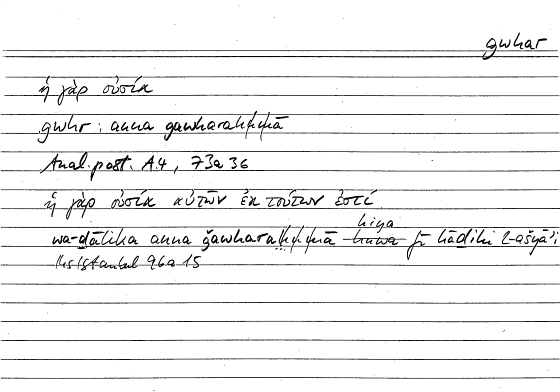 gwhar
ἡ γὰρ οὐσία
gwhr : anna gawharahumā
Anal. post. A.4, 73a36
ἡ γὰρ οὐσία αὐτῶν ἐκ τούτων ἐστί
hiya
wa-ḏālika anna ǧawhara humā huwa fī hāḏihi l-ašyāʾi
Hs Istanbul 96a 15